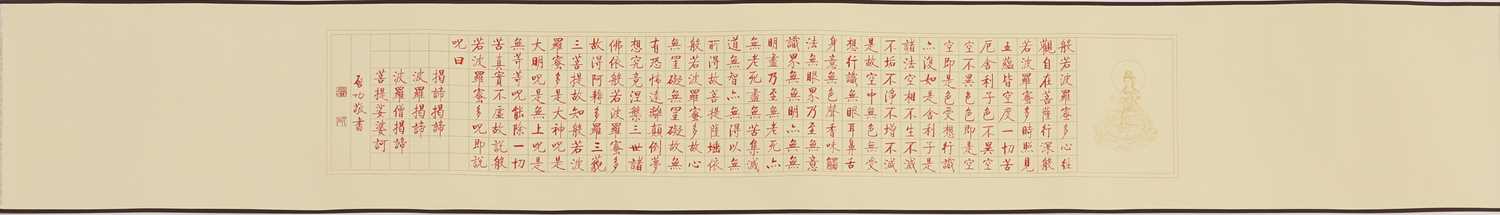 般若波羅蜜多心経
觀自在菩薩行深般
若波羅蜜多時照見
五蘊皆空度一切苦
厄舍利子色不異空
空不異色色即是空
空即是色受想行識
亦復如是舍利子是
諸法空相不生不滅
不垢不淨不增不減
是故空中無色無受
想行識無眼耳鼻舌
身意無色聲香味觸
法無眼界乃至無意
識界無無明亦無無
明盡乃至無老死亦
無老死盡無苦集滅
道無智亦無得以無
所得故菩提薩埵依
般若波羅蜜多故心
無罣礙無罣礙故無
有恐怖遠離顛倒夢
想究竟涅槃三世諸
佛依般若波羅蜜多
故得阿耨多羅三藐
三菩提故知般若波
羅蜜多是大神呪是
大明呪是無上呪是
無等等呪能除一切
苦真實不虛故說般
若波羅蜜多呪即說
呪曰
揭諦揭諦
波羅揭諦
波羅僧揭諦
菩提娑婆訶
啟功敬書